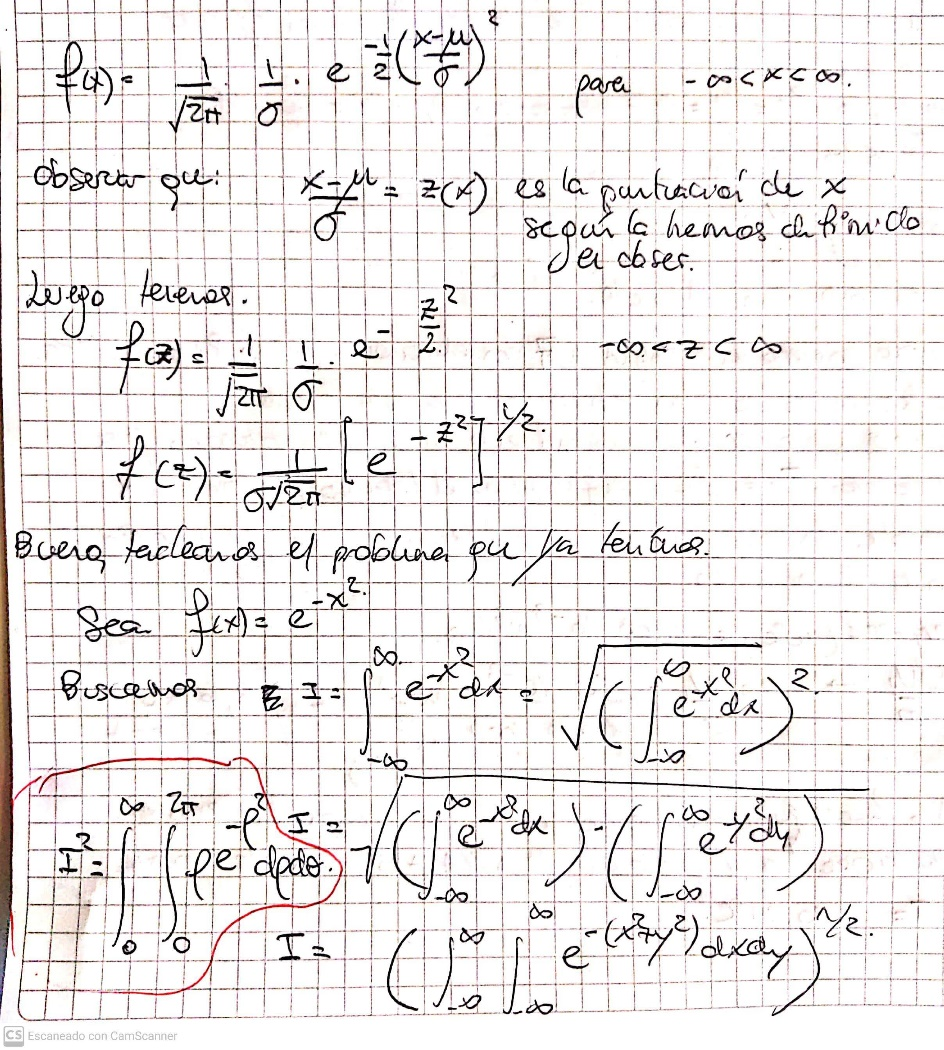 f(x) = 1/√2π · 1/σ · e^(-1/2((x-μ)/σ)^2) para -∞ < x < ∞.
Observar que: (x-μ)/σ = z(x) es la puntuación de x
según la hemos definido
Luego tenemos.
f(z) = 1/√2π · 1/σ · e^(-z^2/2) -∞ < z < ∞
f(z) = 1/(σ√2π) [e^(-z^2)]^(1/2).
Bueno, el problema que ya
Sea f(x) = e^(-x^2).
Buscamos I = ∫_{-∞}^{∞} e^(-x^2) dx = √((∫_{-∞}^{∞} e^(-x^2) dx)^2).
I = √((∫_{-∞}^{∞} e^(-x^2) dx) · (∫_{-∞}^{∞} e^(-y^2) dy))
I^2 = ∫_0^∞ ∫_0^{2π} ρe^(-ρ^2) dρdθ.
I = (∫_{-∞}^{∞} ∫_{-∞}^{∞} e^(-(x^2+y^2)) dxdy)^(1/2).
CS Escaneado con CamScanner